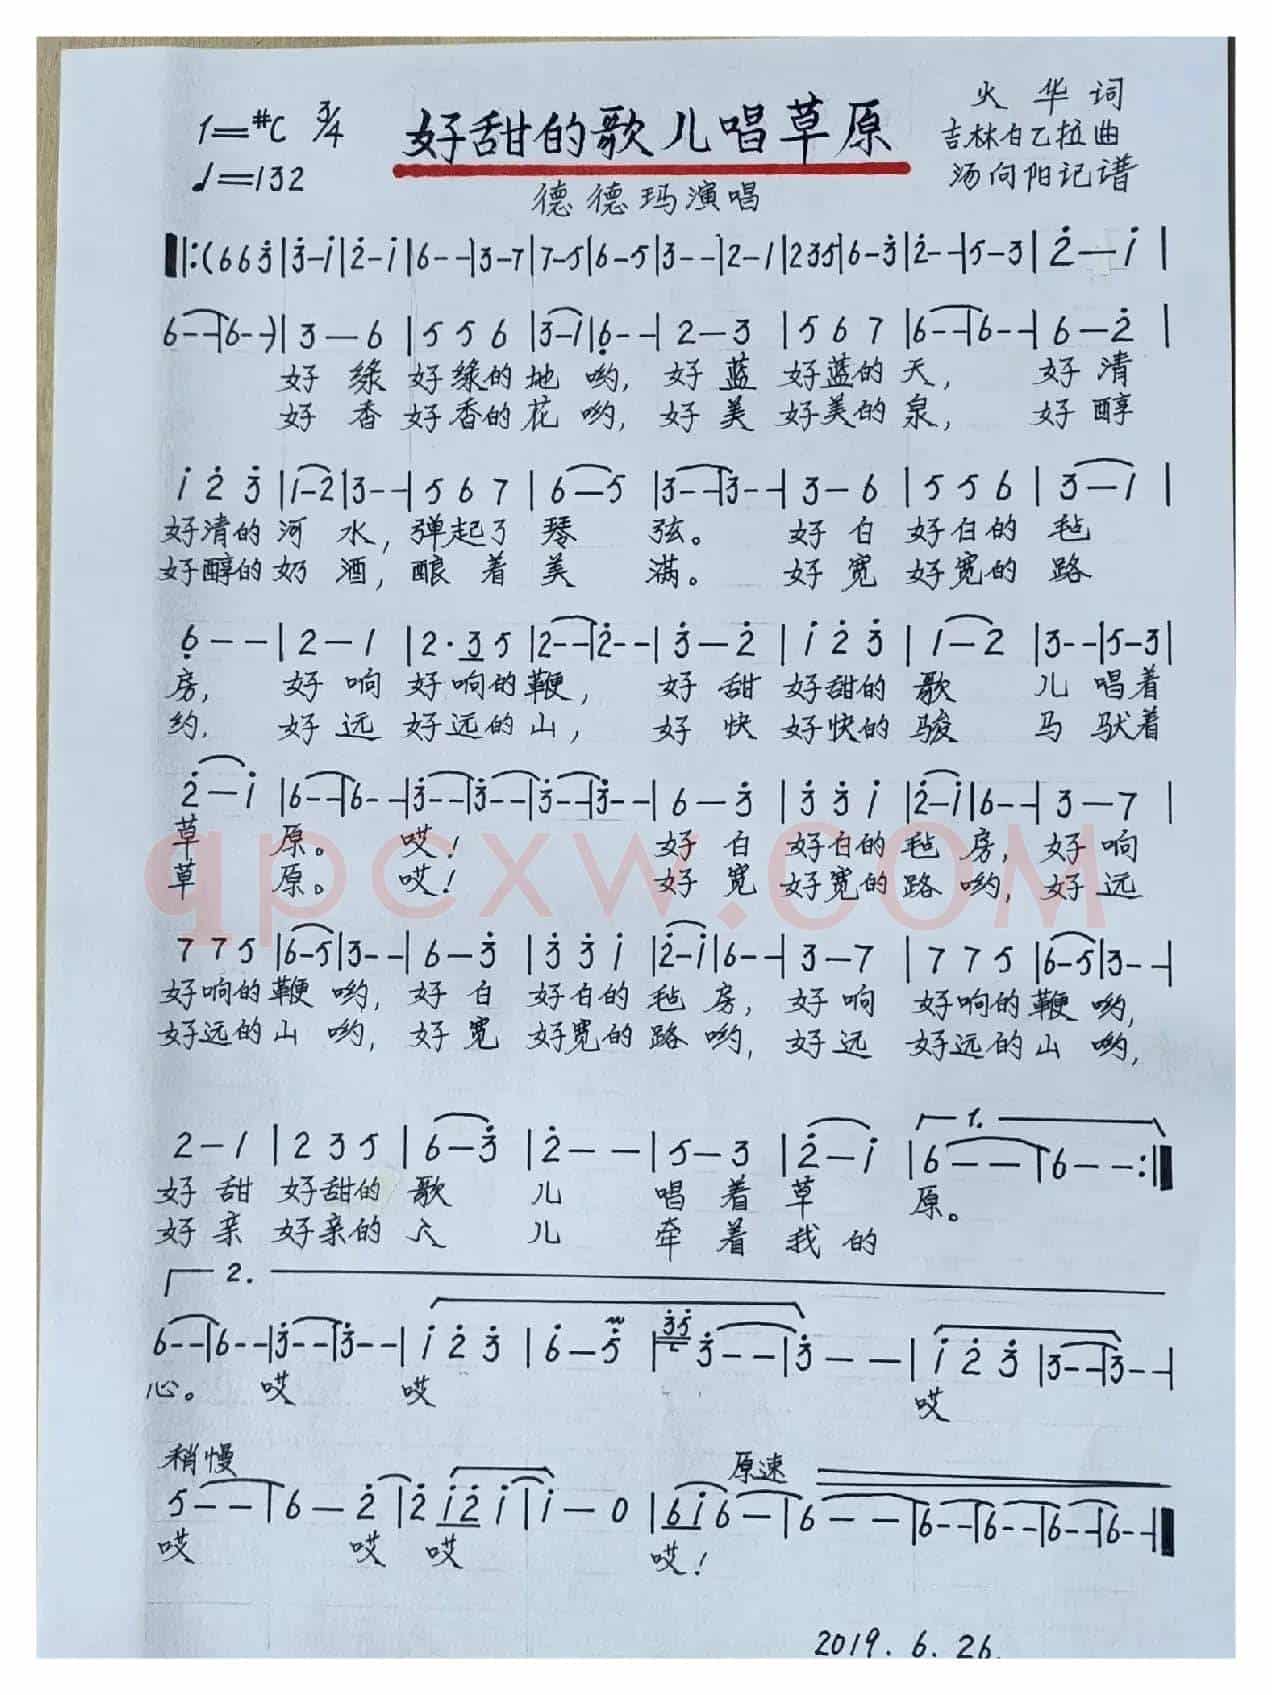 1=#C 3/4 好甜的歌儿唱草原 火华词
吉林白乙拉曲
♩=132 汤向阳记谱
德德玛演唱
‖:(6 6 3̇|3̇-1̇|2̇-1̇|6--|3-7|7-5|6-5|3--|2-1|2 3 5|6-3̇|2̇--|5-3|2̇-1̇|
6--|6--)|3-6|5 5 6|3-1|6̣--|2-3|5 6 7|6--|6--|6-2̇|
好绿好绿的地哟,好蓝好蓝的天,好清
好香好香的花哟,好美好美的泉,好醇
1̇ 2̇ 3̇|1̇-2̇|3--|5 6 7|6-5|3--|3--|3-6|5 5 6|3-1|
好清的河水,弹起了琴弦。好白好白的毡
好醇的奶酒,酿着美满。好宽好宽的路
6̣--|2-1|2·3 5|2--|2--|3̇-2̇|1̇ 2̇ 3̇|1-2|3--|5-3|
房,好响好响的鞭,好甜好甜的歌儿唱着
约,好远好远的山,好快好快的骏马驮着
2̇-1̇|6--|6--|3̇--|3̇--|3̇--|3̇--|6-3̇|3̇ 3̇ 1̇|2̇-1̇|6--|3-7|
草原。哎!好白好白的毡房,好响
草原。哎!好宽好宽的路哟,好远
7 7 5|6-5|3--|6-3̇|3̇ 3̇ 1̇|2̇-1̇|6--|3-7|7 7 5|6-5|3--|
好响的鞭哟,好白好白的毡房,好响好响的鞭哟,
好远的山哟,好宽好宽的路哟,好远好远的山哟,
1.
2-1|2 3 5|6-3̇|2̇--|5-3|2̇-1̇|6--|6--:‖
好甜好甜的歌儿唱着草原。
好亲好亲的人儿牵着我的
2.
6--|6--|3̇--|3̇--|1̇ 2̇ 3̇|6-5̇|3̇5̇ 3̇--|3̇--|1̇ 2̇ 3̇|3--|3--|
心。哎哎哎
稍慢 原速
5--|6-2̇|2̇ 1̇2̇ 1̇|1̇-0|61̇ 6-|6--|6--|6--|6--|6--‖
哎哎哎哎!
2019.6.26.
qpcxw.COM